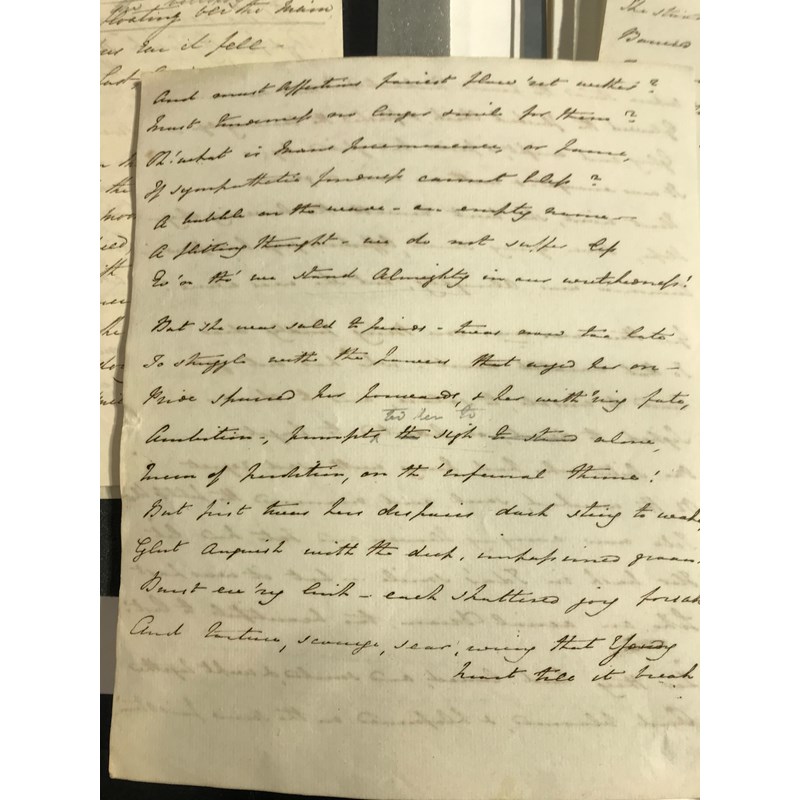 floating o'er the main
it fell -
The
Banned
And must Affections fairest flow'ret wither?
Must tenderness no longer smile for them?
Oh! what is Mans Preeminence, or Fame,
If sympathetic fondness cannot bless?
A bubble on the wave - an empty name -
A flitting thought - we do not suffer less
Ev'n tho' we stand Almighty in our wretchedness!
But she was sold to fiends - twas now too late
To struggle with the Powers that urged her on -
Pride spurred her forwards, & her with'ring fate,
to her to
Ambition -, prompts the sigh to stand alone,
Queen of Perdition, on th' infernal throne!
But first twas hers despairs dark sting to
Glut Anguish with the deep, impassioned
Burst ev'ry link - each shattered joy
And torture, scourge, sear, wring that
heart till it break